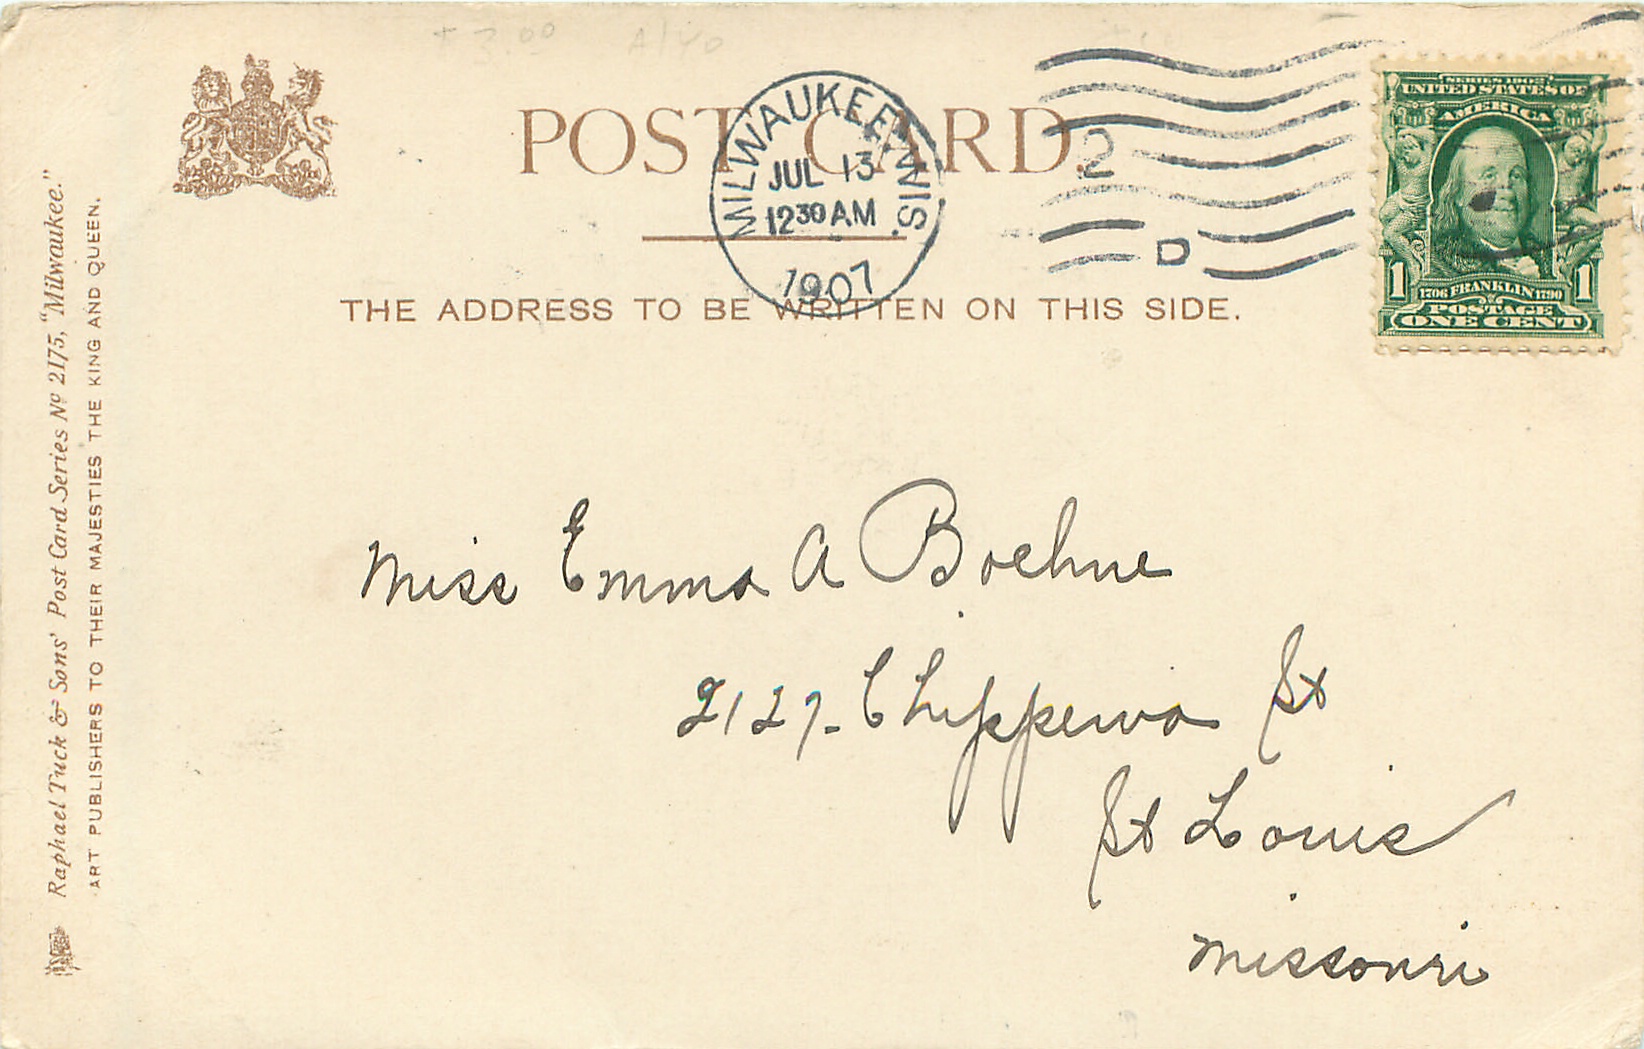 + 3.00 A/40
POST CARD.
MILWAUKEE, WIS.
JUL 13
12 30 AM
1907
2
D
SERIES 1902
UNITED STATES OF
AMERICA
1 1706 FRANKLIN 1790 1
POSTAGE
ONE CENT
THE ADDRESS TO BE WRITTEN ON THIS SIDE.
Raphael Tuck & Sons' Post Card Series No 2175, "Milwaukee."
ART PUBLISHERS TO THEIR MAJESTIES THE KING AND QUEEN.
Miss Emma A Boehne
2127- Chippewa St
St Louis
Missouri